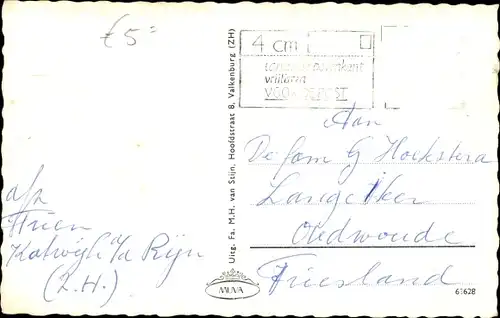 £ 5=
4 cm
langs de bovenkant
vrijlaten
VOOR DE POST
Aan
De fam G Hoekstra
Langeiker
Oudwoude
Friesland
afz
Katwijk a/d Rijn
(Z.H.)
Uitg. Fa. M.H. van Stijn, Hoofdstraat 8, Valkenburg (ZH)
MUVA
61628